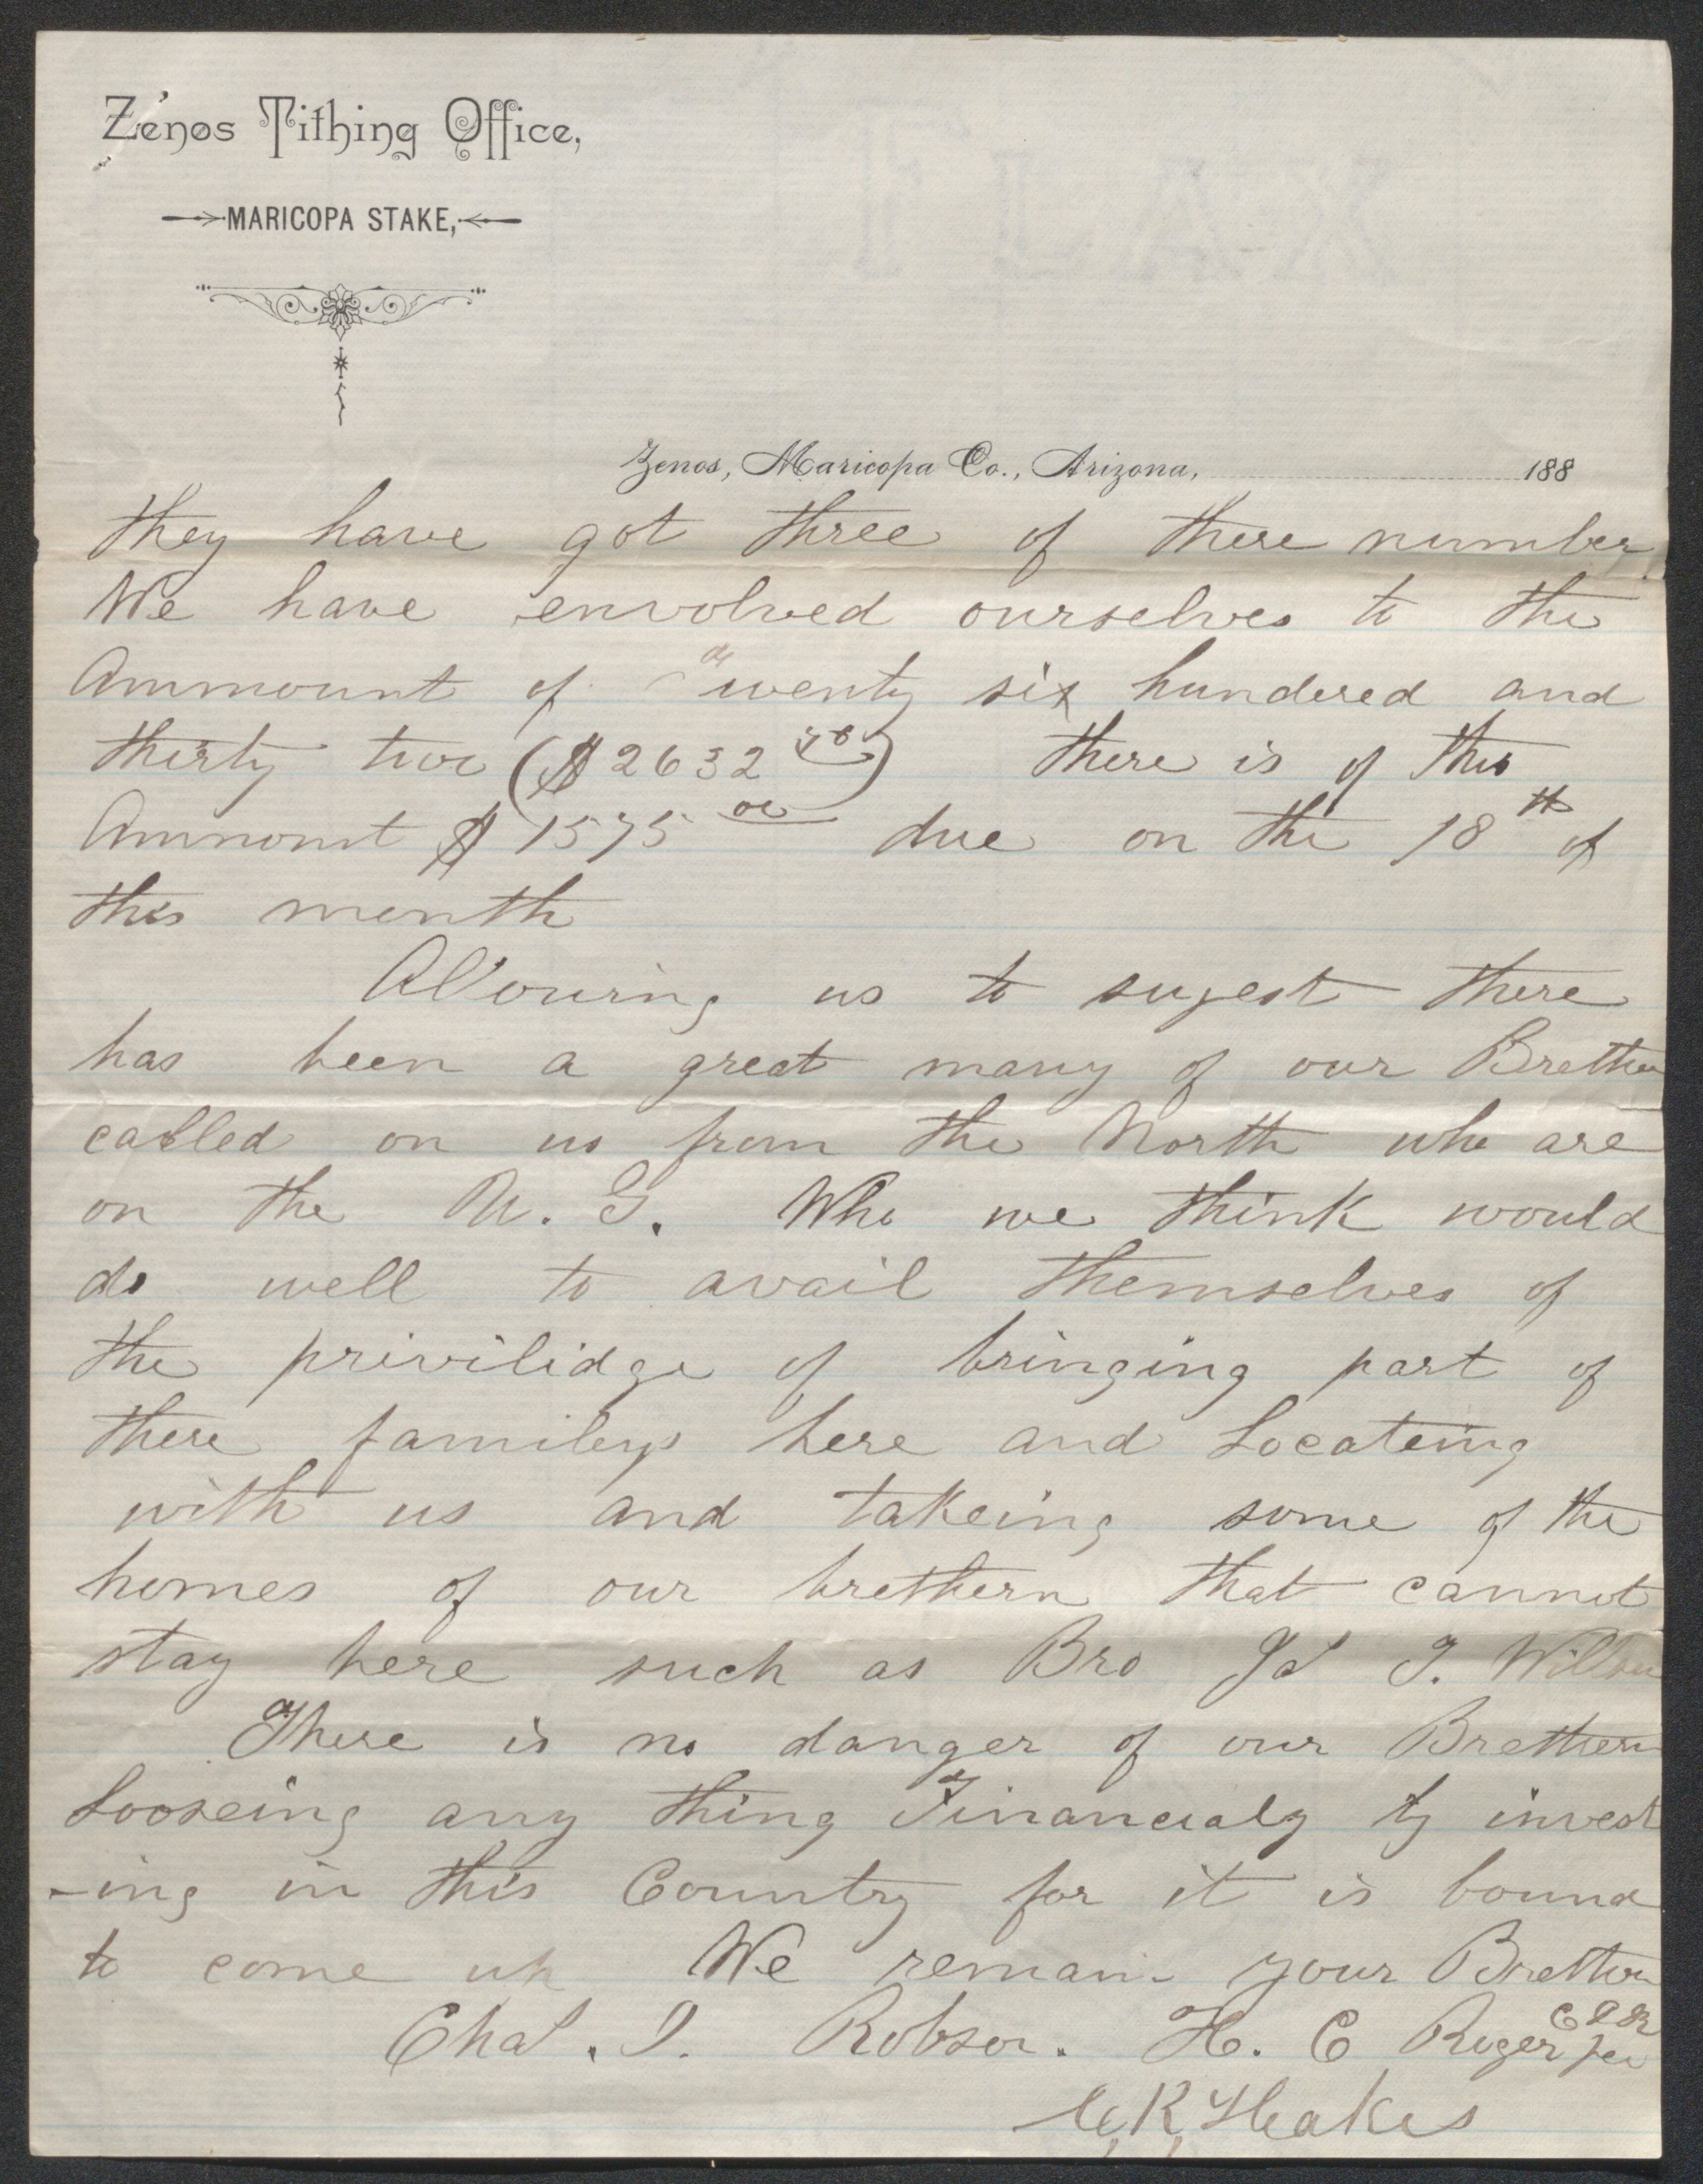 Zenos Tithing Office,
MARICOPA STAKE,
Zenos, Maricopa Co., Arizona, 188
they have got three of there number
We have envolved ourselves to the
Ammount of Twenty six hundered and
thirty two ($2632 78) there is of this
Ammount $1575 00 due on the 18th of
this month
Allouing us to sugest there
has been a great many of our Brethern
called on us from the North who are
on the U. G. Who we think would
do well to avail themselves of
the privilidge of bringing part of
there familys here and Locateing
with us and takeing some of the
homes of our brethern that cannot
stay here such as Bro T. Willson
There is no danger of our Brethern
Looseing any thing Financialy by invest
-ing in this Country for it is bound
to come up We remain your Brethern
Chas. I. Robson. H. C Rogers per
C I R
C, R, Hakes